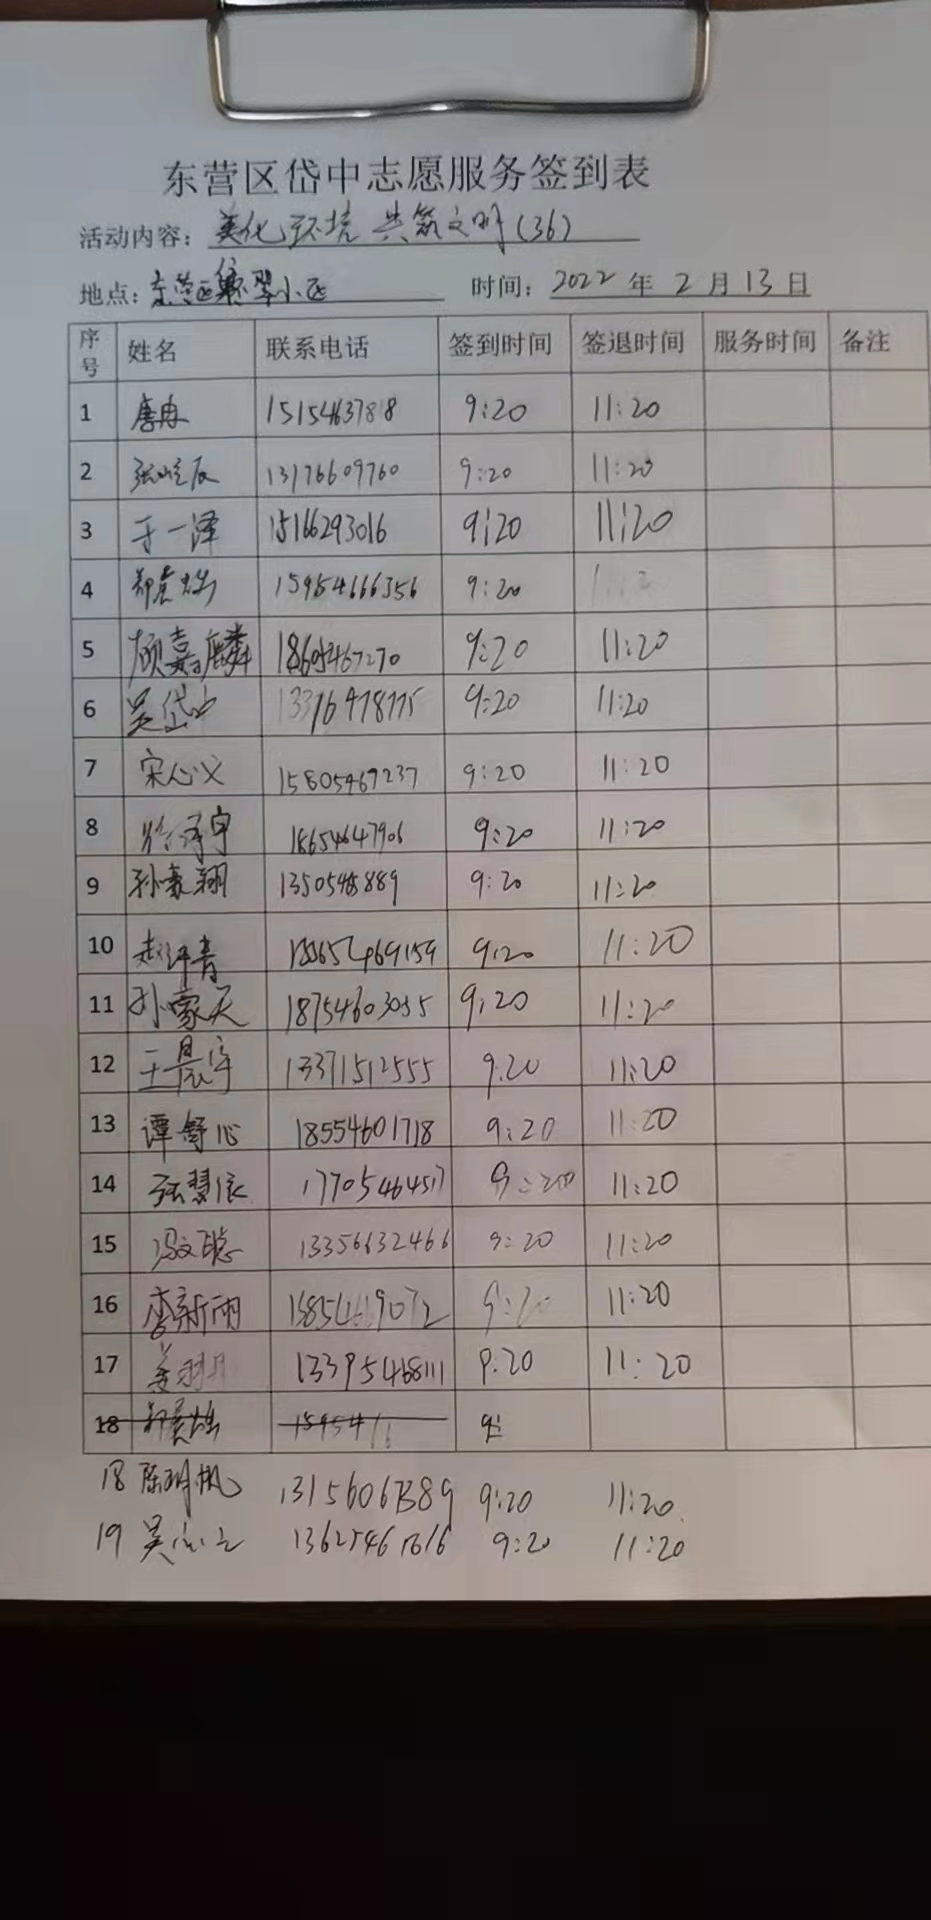 东营区岱中志愿服务签到表
活动内容: 美化环境 共筑文明(36)
地点: 东营区翠小区 时间: 2022 年 2 月 13 日
序号 姓名 联系电话 签到时间 签退时间 服务时间 备注
1 唐冉 15154637818 9:20 11:20
2 张屹辰 13176609760 9:20 11:20
3 于一泽 15166293016 9:20 11:20
4 15954666356 9:20
5 顾嘉麟 9:20 11:20
6 吴岱中 9:20 11:20
7 宋心义 15805467237 9:20 11:20
8 18654647906 9:20 11:20
9 孙豪翔 9:20 11:20
10 赵汗青 9:20 11:20
11 孙家天 18754603035 9:20 11:20
12 王晨宇 13371512555 9:20 11:20
13 谭舒心 18554601718 9:20 11:20
14 张慧依 17705464517 9:20 11:20
15 冯文聪 13356632466 9:20 11:20
16 李新雨 11:20
17 姜羽 13395468111 9:20 11:20
18 9:
18 陈明帆 9:20 11:20
19 吴 9:20 11:20